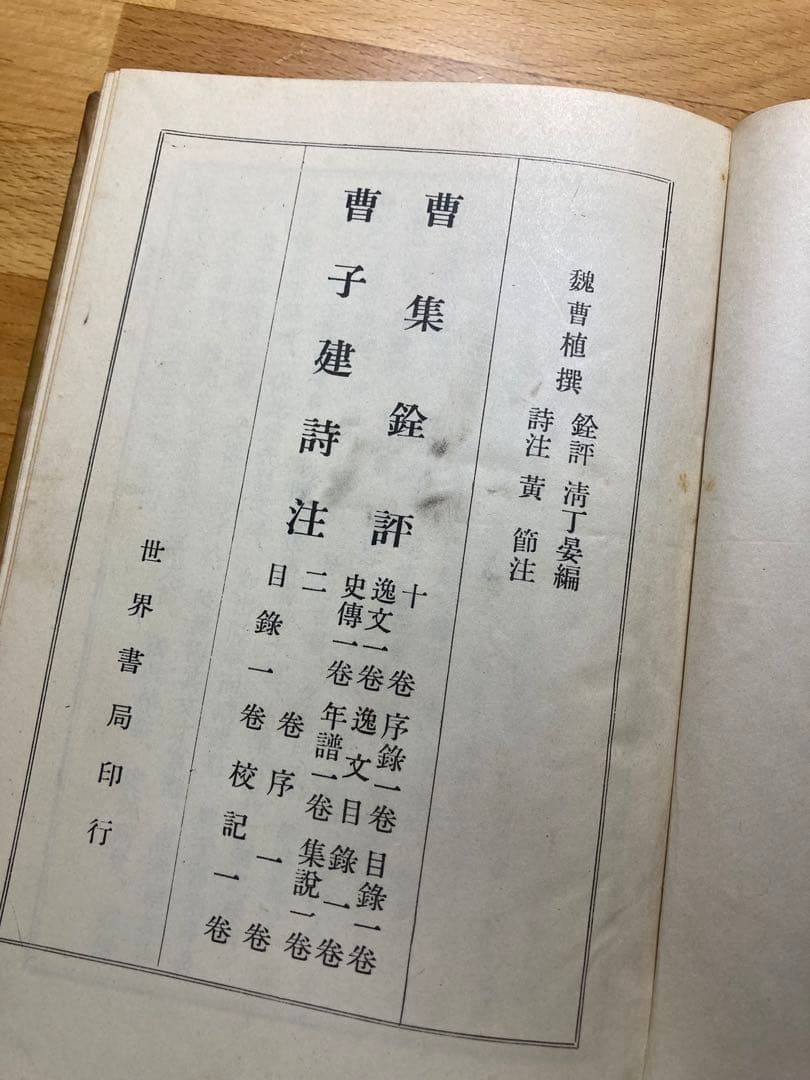 魏曹植撰
銓評 清丁晏編
詩注 黃節注
曹集銓評
十卷 序錄一卷 目錄一卷
逸文一卷 逸文目錄一卷
史傳一卷 年譜一卷 集說一卷
曹子建詩注
二卷 序一卷
目錄一卷 校記一卷
世界書局印行